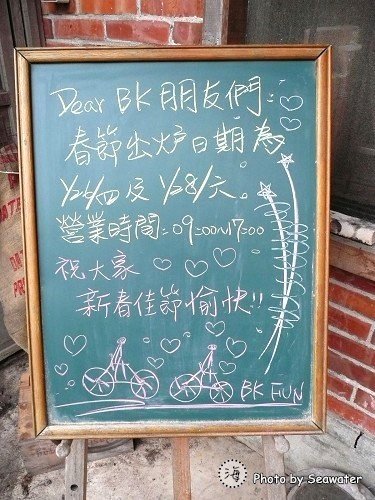 Dear BK 朋友們:
春節出炉日期為
1/26/四 及 1/28/六。
營業時間:09:00~17:00
祝大家
新春佳節愉快!!
BK FUN
海
Photo by Seawater